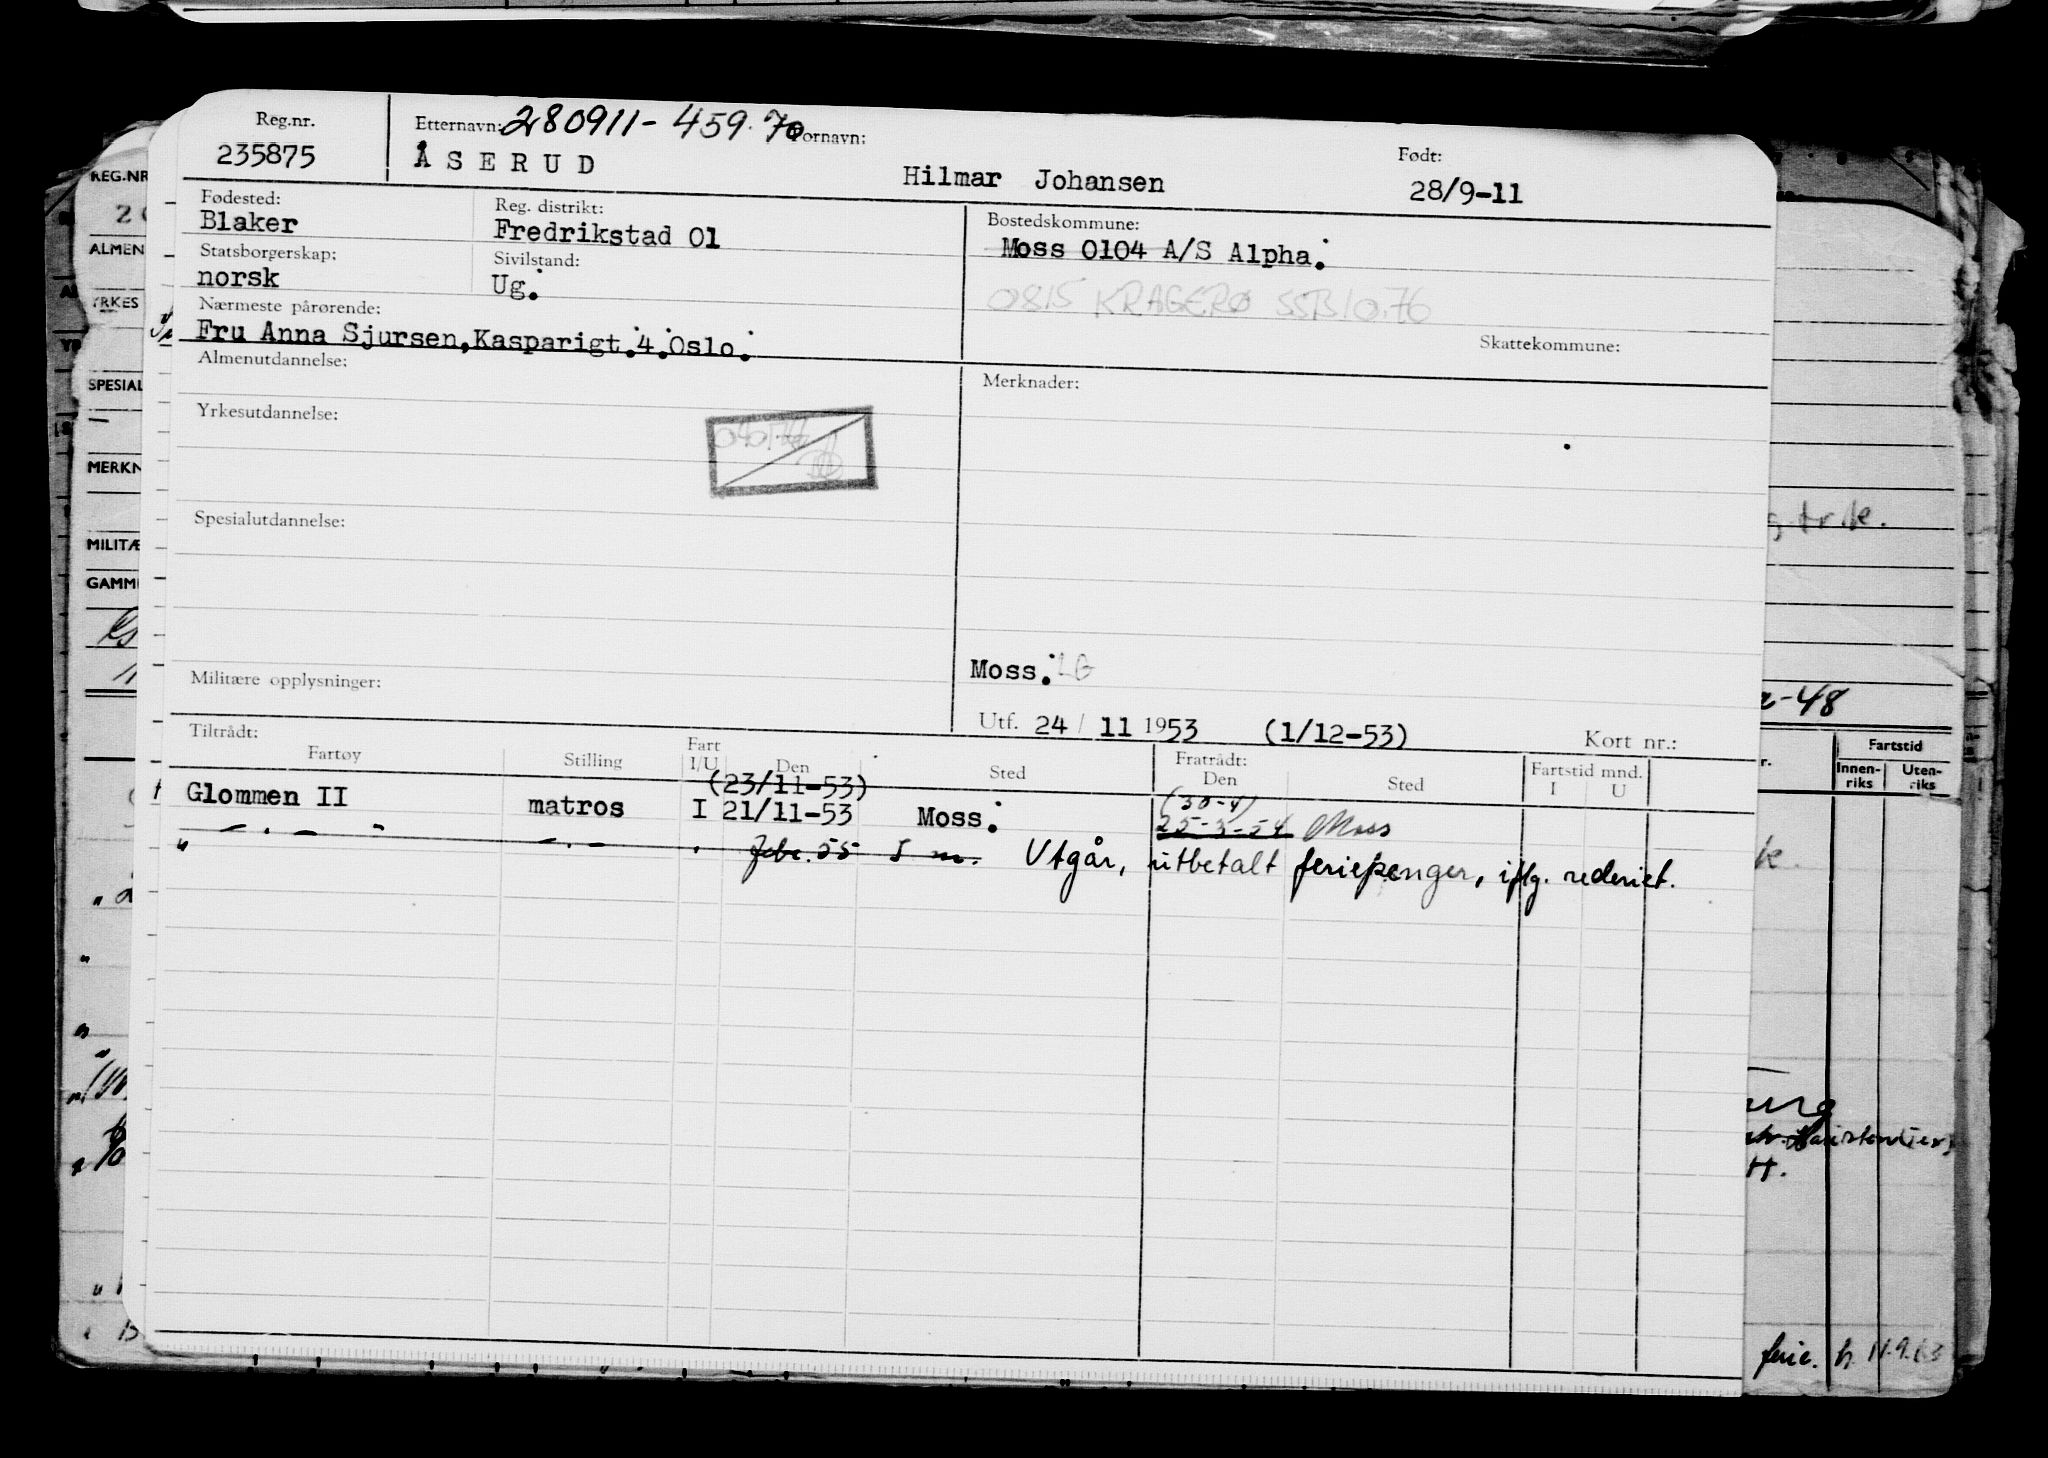 Reg.nr.
235875
Etternavn: 280911-459.70 Fornavn:
ÅSERUD
Hilmar Johansen
Født:
28/9-11
Fødested:
Blaker
Reg. distrikt:
Fredrikstad 01
Bostedskommune:
Moss 0104 A/S Alpha.
Statsborgerskap:
norsk
Sivilstand:
Ug.
0815 KRAGERØ SSB 10.76
Nærmeste pårørende:
Fru Anna Sjursen, Kasparigt. 4. Oslo.
Skattekommune:
Almenutdannelse:
Merknader:
Yrkesutdannelse:
Spesialutdannelse:
Militære opplysninger:
Moss.
Utf. 24 / 11 1953 (1/12-53)
Kort nr.:
Tiltrådt:
Fartøy
Stilling
Fart
I/U
Den
Sted
Fratrådt:
Den
Sted
Fartstid mnd.
I U
(23/11-53)
Glommen II matros I 21/11-53 Moss.
(30-4)
25-3-54 Moss
" febr. 55 I m. Utgår, utbetalt feriepenger, iflg. rederiet.
REG.NR
ALMEN
YRKES
SPESIAL
MERKN
MILITÆ
GAMM
-48
Fartstid
Innen-
riks
Uten-
riks
ferie.